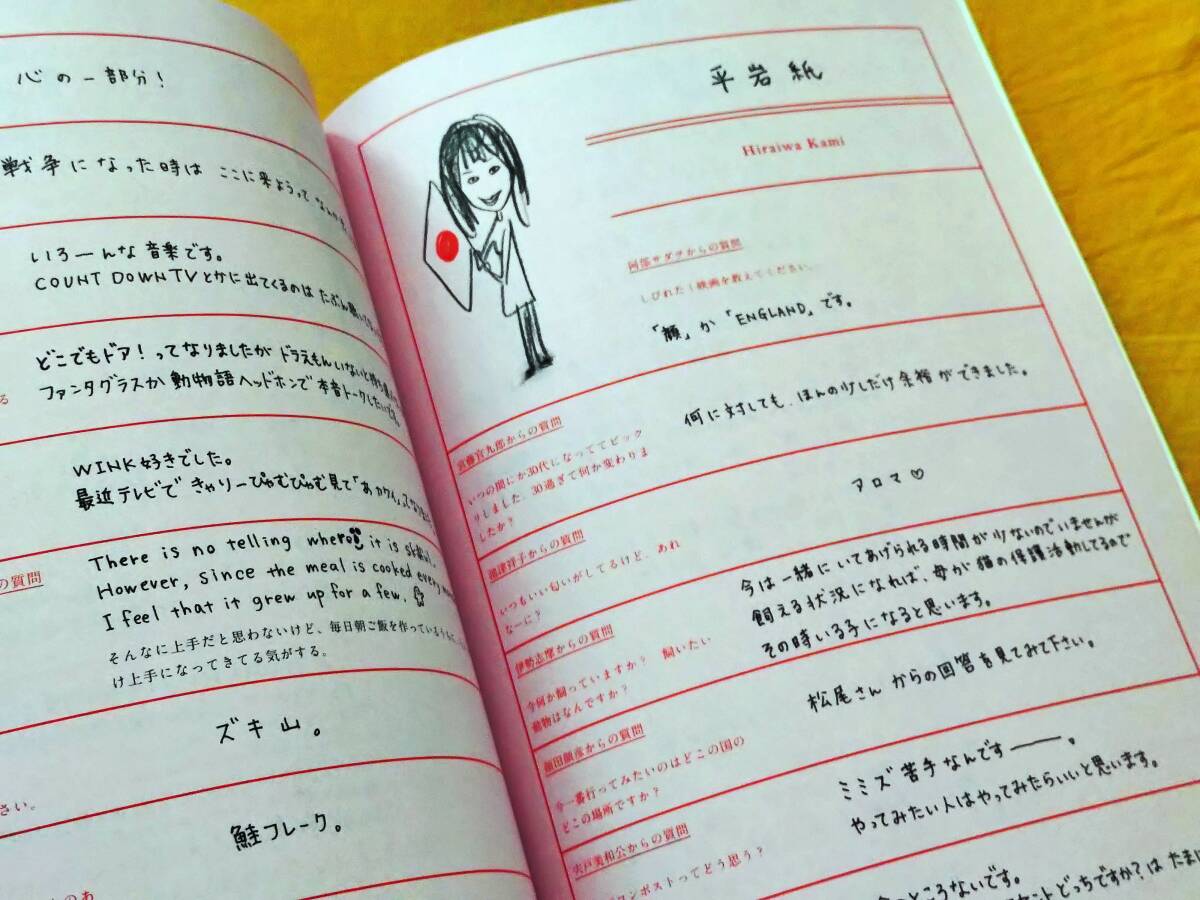 心の一部分！
戦争になった時は ここに来ようって なんか
いろーんな音楽です。
COUNT DOWN TVとかに出てくるのは たぶん
どこでもドア！ってなりましたが ドラえもんいないと
ファンタグラスか動物語ヘッドホンで本音トークしたいです。
WINK好きでした。
最近テレビできゃりーぱみゅぱみゅ見て「あ
の質問
There is no telling where it is skillful.
However, since the meal is cooked every
I feel that it grew up for a few.
そんなに上手だと思わないけど、毎日朝ご飯を作っている
け上手になってきてる気がする。
ズキ山。
さい。
鮭フレーク。
のあ
平岩紙
Hiraiwa Kami
阿部サダヲからの質問
しびれたく映画を教えてください。
「顔」か「ENGLAND」です。
宮藤官九郎からの質問
いつの間にか30代になっててビック
りしました。30過ぎて何か変わりま
したか？
何に対しても、ほんの少しだけ余裕ができました。
池津祥子からの質問
いつもいい匂いがしてるけど、あれ
なーに？
アロマ♡
伊勢志摩からの質問
今何か飼っていますか？ 飼いたい
動物はなんですか？
今は一緒にいてあげられる時間が少ないのでいませんが
飼える状況になれば、母が猫の保護活動してるので
その時いる子になると思います。
顔田顔彦からの質問
今一番行ってみたいのはどこの国の
どこの場所ですか？
松尾さんからの回答を見てみて下さい。
宍戸美和公からの質問
ンポストってどう思う？
ミミズ苦手なんですー。
やってみたい人はやってみたらいいと思います。
ところないです。
どっちですか？はたまに